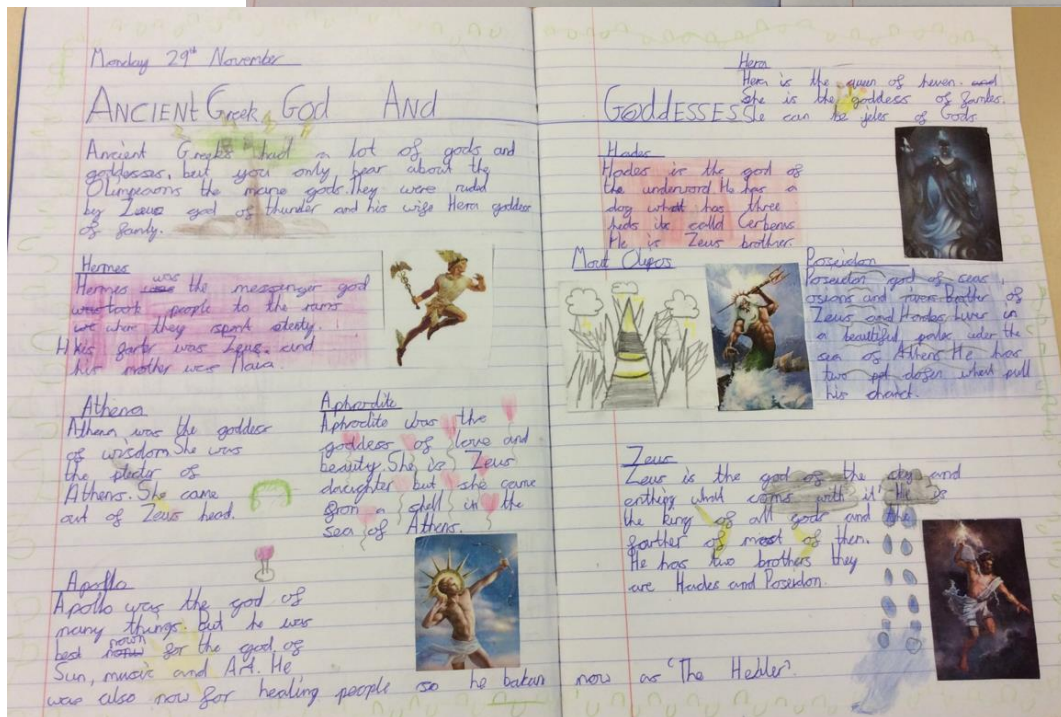 Monday 29th November
ANCIENT Greek GOD AND GODDESSES
Ancient Greeks had a lot of gods and
goddesses, but you only hear about the
Olimpearns the mane gods. They were ruled
by Zeus god of thunder and his wife Hera goddess
of famly.
Hermes
Hermes was the messenger god
took people to the
where they spent
His farter was Zeus. and
his mother was Maia.
Athena
Athena was the goddess
of wisdom She was
the of
Athens. She came
out of Zeus head.
Aphrodite
Aphrodite was the
goddess of love and
beauty. She is Zeus
daughter but she came
from a shell in the
sea of Athens.
Apollo
Apollo was the god of
many things. But he was
best nown for the god of
Sun, music and Art. He
was also now for healing people so he bakan now as "The Hebler".
Hera
Hera is the queen of heven. and
She is the goddess of
She can be jeles of Gods
Hades
Hades is the god of
the underword He has a
dog what has three
heds its called Cerberus
He is Zeus brother.
Mout Olipos
Poseidon
Poseidon god of seas,
osians and rivers. Brother of
Zeus and Hardes. Lives in
a beautifed under the
sea of Athens He has
two dofen what pull
his
Zeus
Zeus is the god of the sky and
enthing what comes with it. He is
the king of all gods and the
farther of most of them.
He has two brothers they
are Hades and Poseidon.